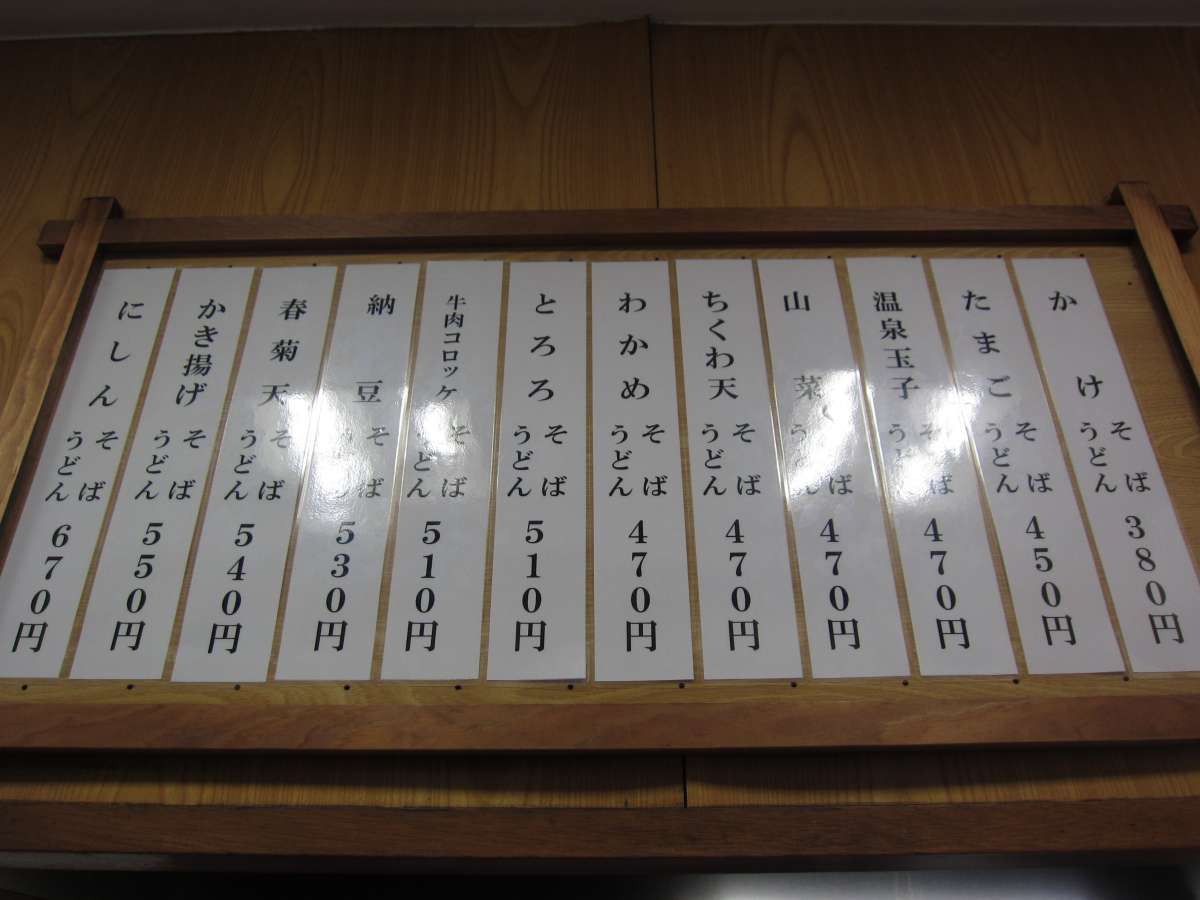 かけ そば うどん 380円
たまご そば うどん 450円
温泉玉子 そば うどん 470円
山菜 そば うどん 470円
ちくわ天 そば うどん 470円
わかめ そば うどん 470円
とろろ そば うどん 510円
牛肉コロッケ そば うどん 510円
納豆 そば 530円
春菊天 そば うどん 540円
かき揚げ そば うどん 550円
にしん そば うどん 670円